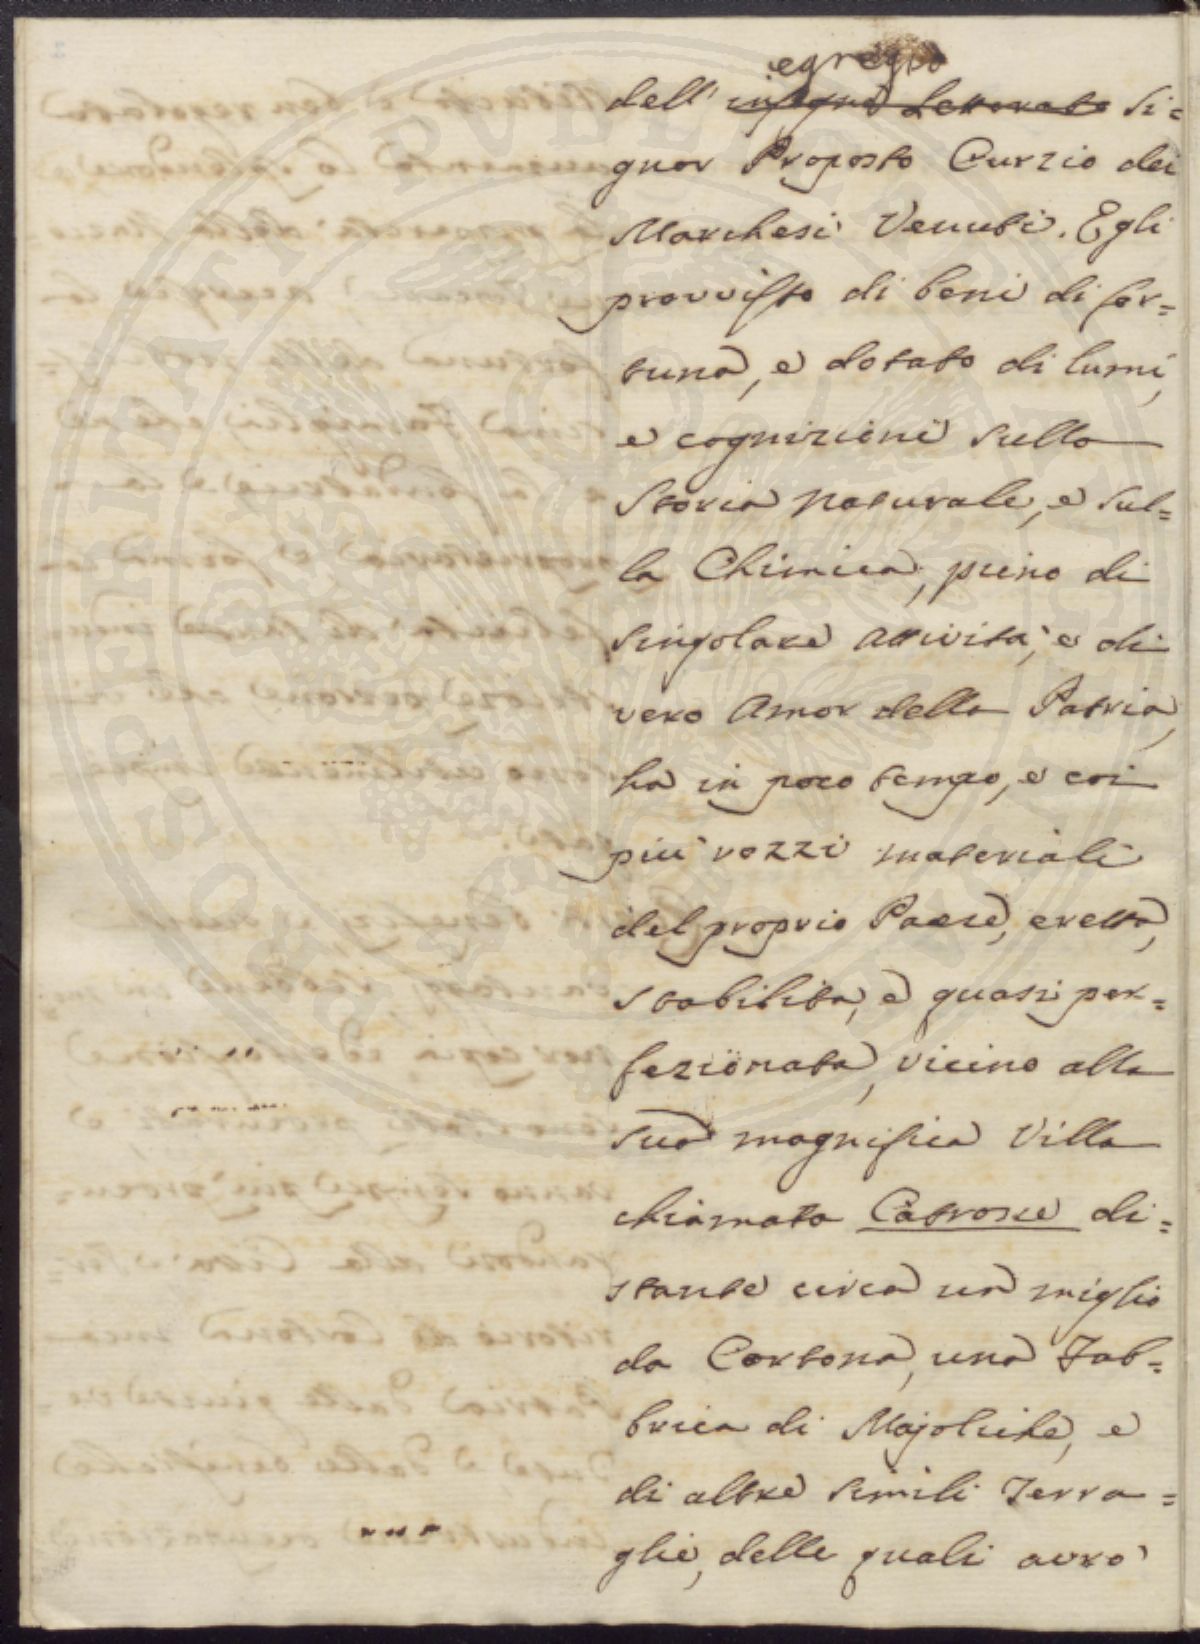 egregio
dell' insigne Letterato Si=
gnor Proposto Curzio dei
Marchesi Venuti. Egli
provvisto di beni di for=
tuna, e dotato di lumi,
e cognizioni sulla
Storia Naturale, e sul=
la Chimica, pieno di
singolare attività, e di
vero Amor della Patria,
ha in poco tempo, e coi
più rozzi materiali
del proprio Paese, eretta,
stabilita, e quasi per=
fezionata, vicino alla
sua magnifica Villa
chiamata Catrosse di=
stante circa un miglio
da Cortona, una Fab=
brica di Majoliche, e
di altre simili Terra=
glie, delle quali avrò
PROSPERITATI PUBLICAE AUGENDAE